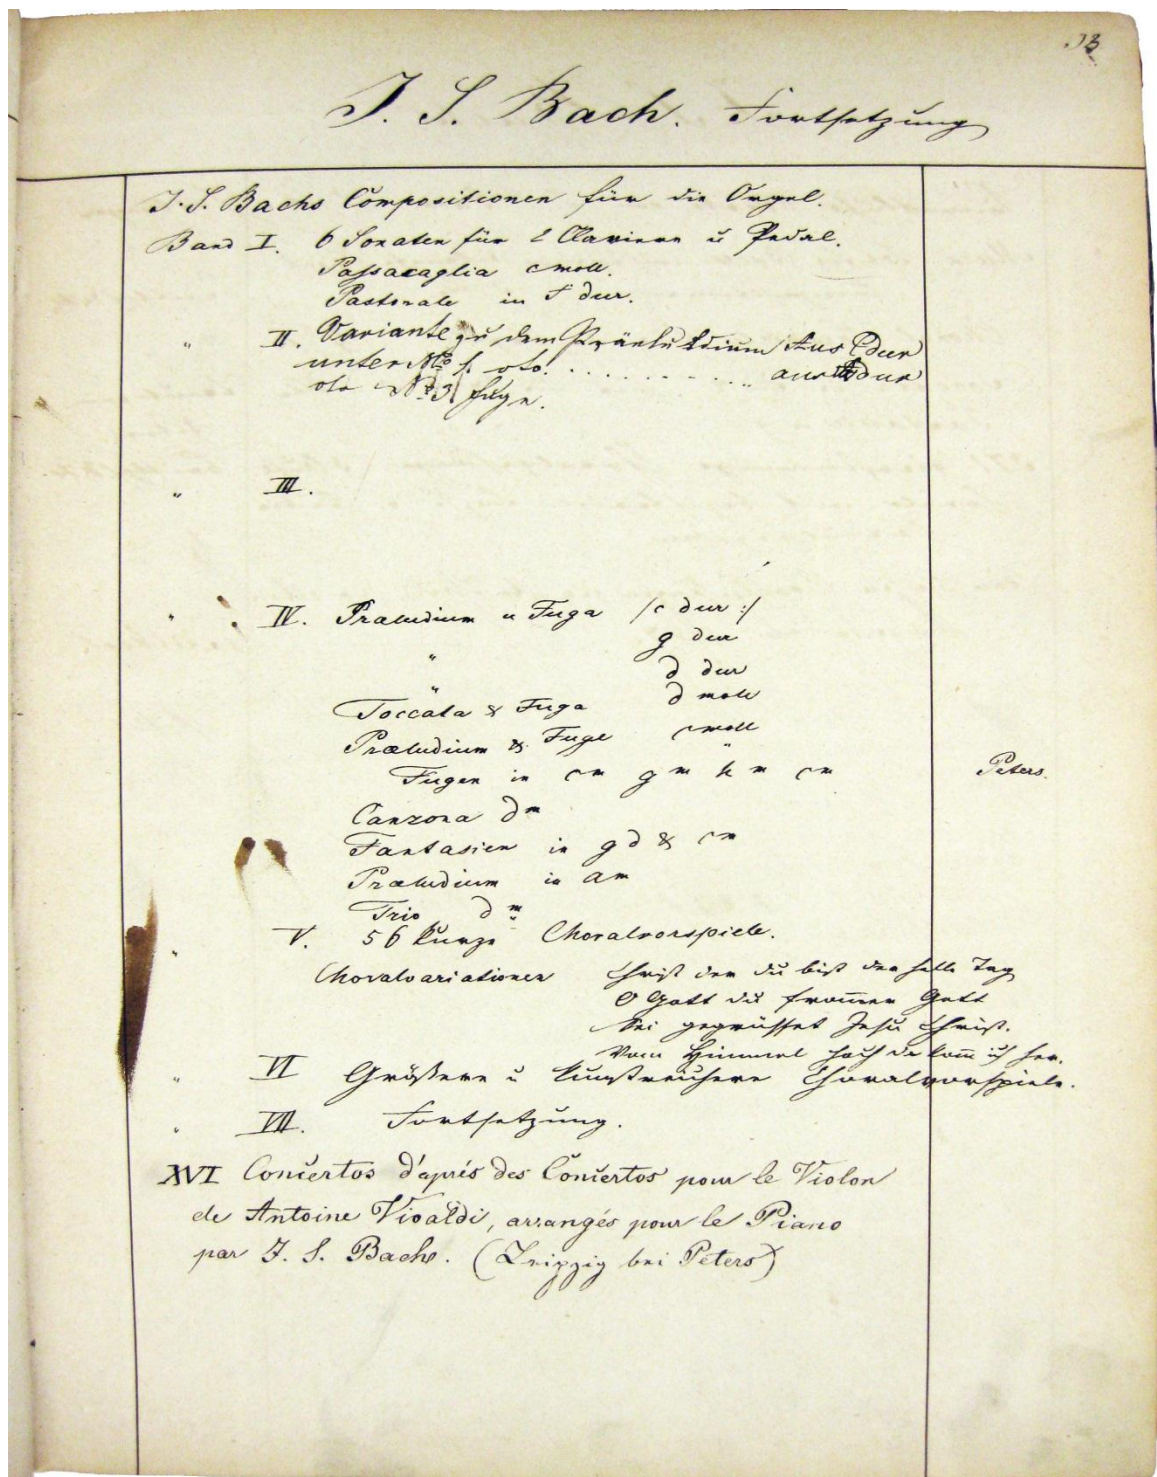 J. S. Bach. Fortsetzung
J. S. Bachs Compositionen für die Orgel.
Band I. 6 Sonaten für 2 Claviere u Pedal.
Passacaglia c moll.
Pastorale in F dur.
" II. Variante zu dem Präludium Aus C dur
unter No 1. oto. . . . . . . . . . . aus dur
oto No 3 Fuge.
" III.
" IV. Praeludium u Fuga /: c dur :/
" g dur
" d dur
Toccata & Fuga d moll
Præludium & Fuge c moll
Fugen in cm gm hm cm
Peters.
Canzona dm
Fantasien in g d & cm
Præludium in am
Trio dm
" V. 56 kurze Choralvorspiele.
Choralvariationen Christ der du bist der helle Tag
O Gott du from̅er Gott
Sei gegrüsset Jesu Christ.
Vom Himmel hoch da kom̅ ich her.
" VI Größere u kunstreichere Choralvorspiele.
" VII. Fortsetzung.
XVI Concertos d'après des Concertos pour le Violon
de Antoine Vivaldi, arrangés pour le Piano
par J. S. Bach. (Leipzig bei Peters)